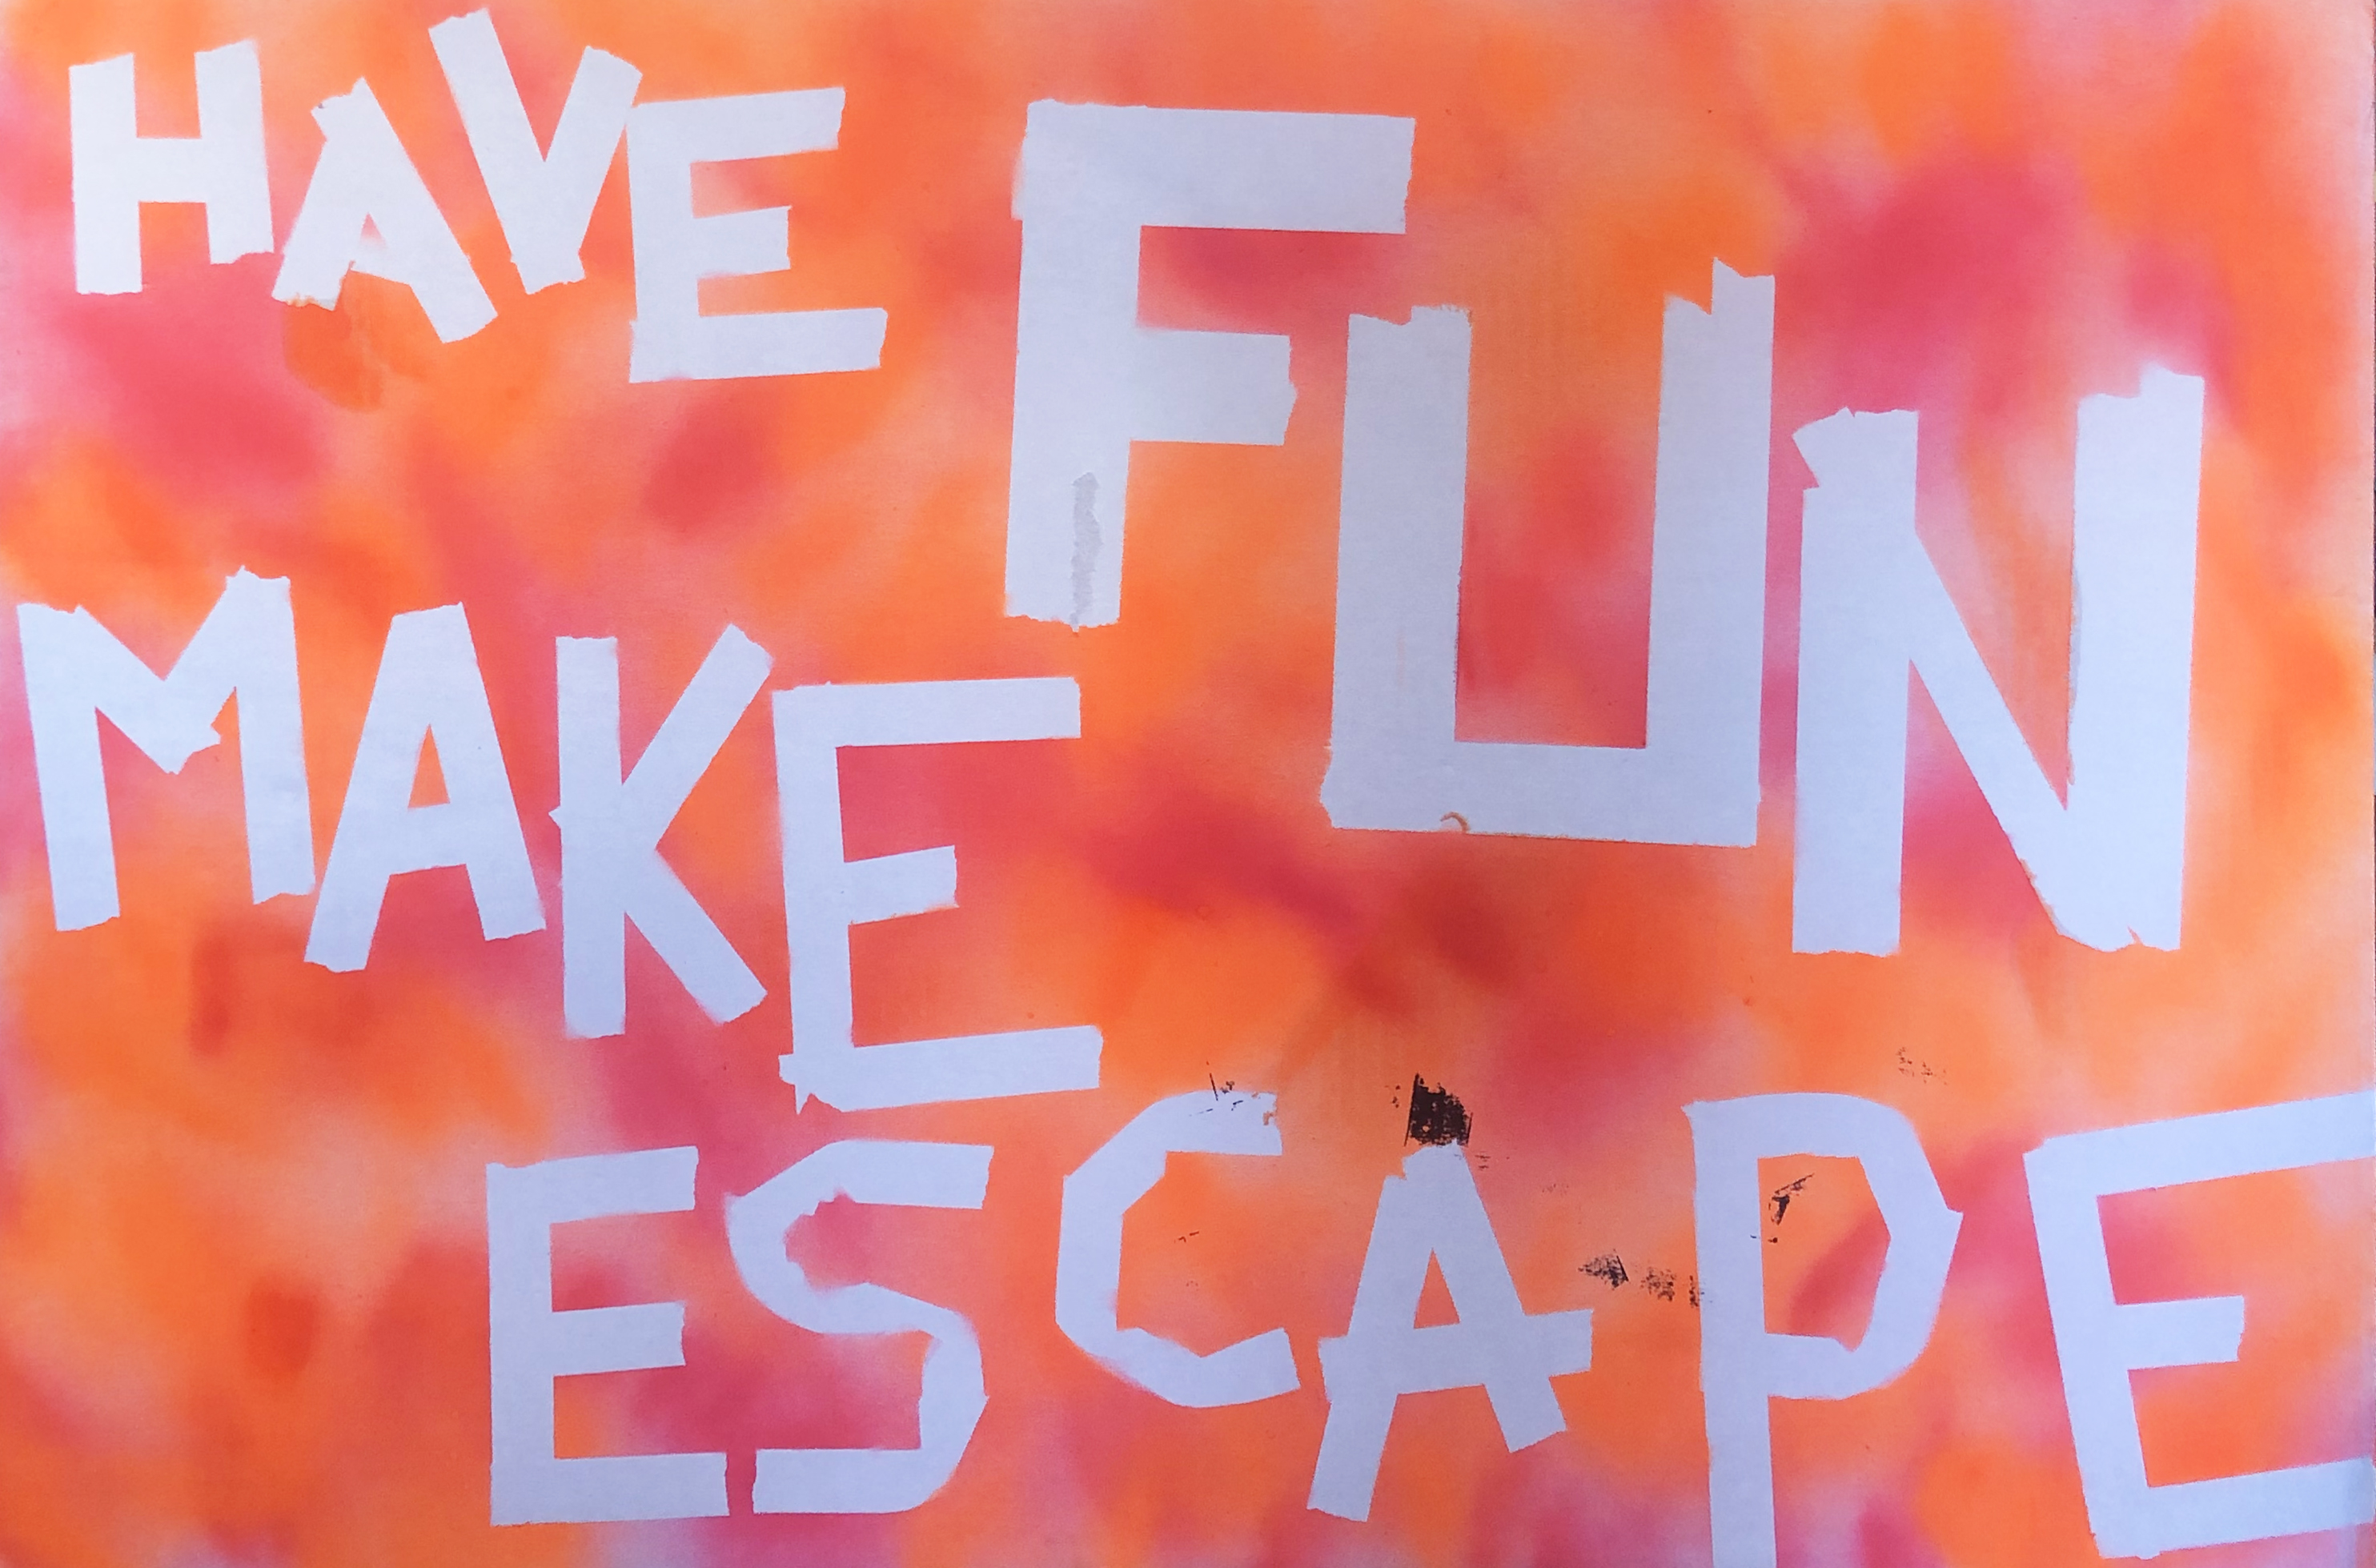 HAVE FUN
MAKE
ESCAPE